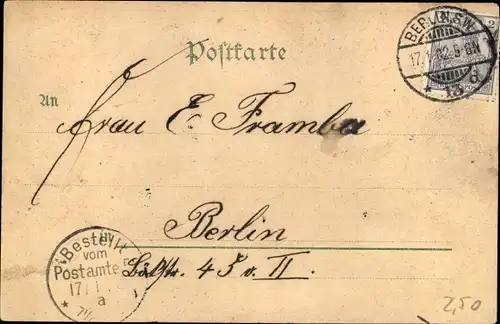 BERLIN S.W.
17.1.02.
* 13 d
Postkarte
An
Frau E. Framba
Berlin
Bestellt
vom
Postamte
17/1
* a
45 v. II.
2,50